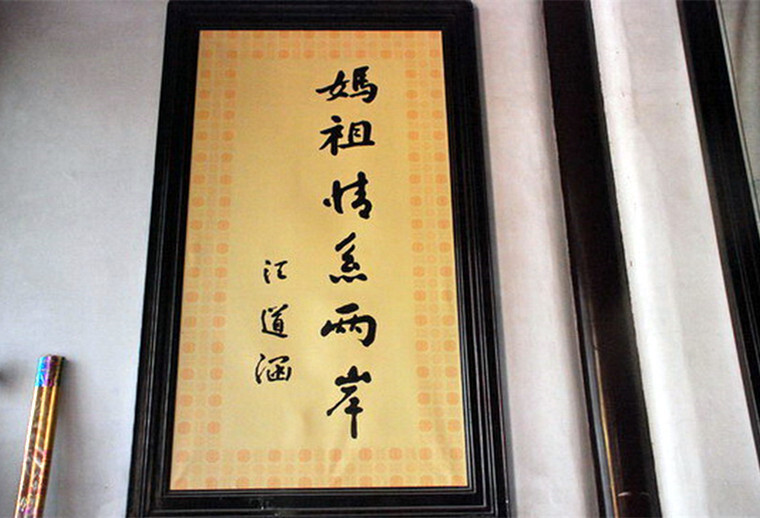 媽祖情系两岸
汪道涵